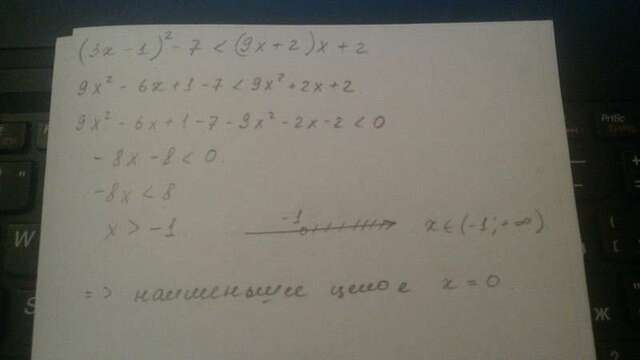 (3x-1)² - 7 < (9x+2)x + 2
9x² - 6x + 1 - 7 < 9x² + 2x + 2
9x² - 6x + 1 - 7 - 9x² - 2x - 2 < 0
-8x - 8 < 0
-8x < 8
x > -1 -1 x ∈ (-1; +∞)
=> наименьшее целое x = 0
PrtSc
W
S
Ж